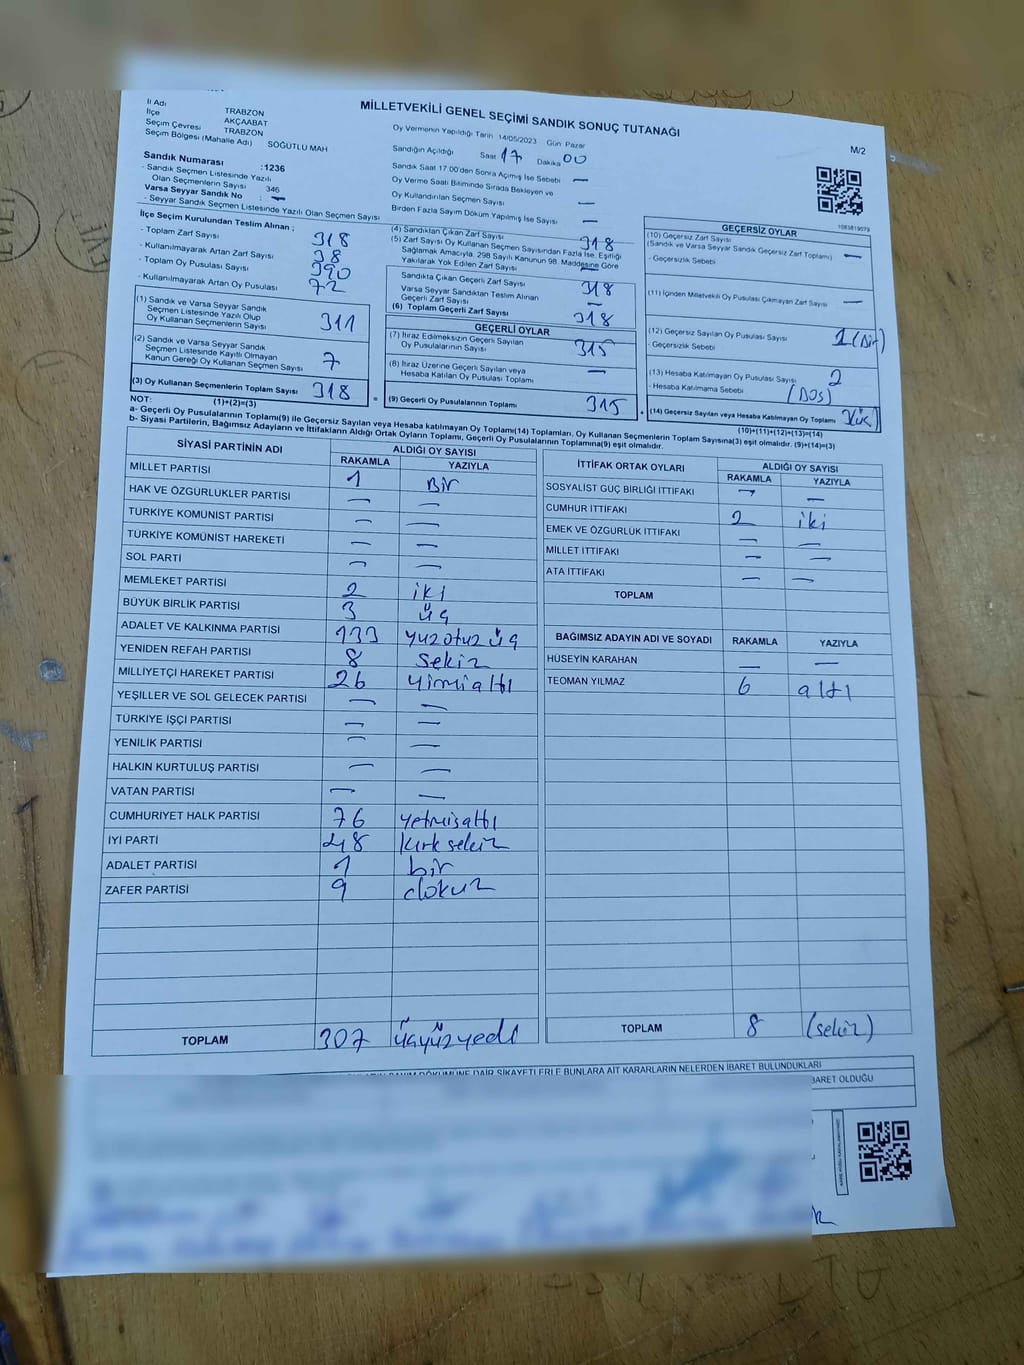 MİLLETVEKİLİ GENEL SEÇİMİ SANDIK SONUÇ TUTANAĞI
M/2
İl Adı TRABZON
İlçe AKÇAABAT
Seçim Çevresi TRABZON
Seçim Bölgesi (Mahalle Adı) SÖĞÜTLÜ MAH
Sandık Numarası :1236
- Sandık Seçmen Listesinde Yazılı
Olan Seçmenlerin Sayısı 346
Varsa Seyyar Sandık No : —
- Seyyar Sandık Seçmen Listesinde Yazılı Olan Seçmen Sayısı
Oy Vermenin Yapıldığı Tarih 14/05/2023 Gün Pazar
Sandığın Açıldığı Saat 17 Dakika 00
Sandık Saat 17:00'den Sonra Açılmış İse Sebebi —
Oy Verme Saati Bitiminde Sırada Bekleyen ve
Oy Kullandırılan Seçmen Sayısı —
Birden Fazla Sayım Döküm Yapılmış İse Sayısı —
İlçe Seçim Kurulundan Teslim Alınan ;
- Toplam Zarf Sayısı 318
- Kullanılmayarak Artan Zarf Sayısı 38
- Toplam Oy Pusulası Sayısı 390
- Kullanılmayarak Artan Oy Pusulası 72
(1) Sandık ve Varsa Seyyar Sandık
Seçmen Listesinde Yazılı Olup
Oy Kullanan Seçmenlerin Sayısı 311
(2) Sandık ve Varsa Seyyar Sandık
Seçmen Listesinde Kayıtlı Olmayan
Kanun Gereği Oy Kullanan Seçmen Sayısı 7
(3) Oy Kullanan Seçmenlerin Toplam Sayısı 318
(1)+(2)=(3)
(4) Sandıktan Çıkan Zarf Sayısı 318
(5) Zarf Sayısı Oy Kullanan Seçmen Sayısından Fazla İse, Eşitliği
Sağlamak Amacıyla, 298 Sayılı Kanunun 98. Maddesine Göre
Yakılarak Yok Edilen Zarf Sayısı —
Sandıkta Çıkan Geçerli Zarf Sayısı 318
Varsa Seyyar Sandıktan Teslim Alınan
Geçerli Zarf Sayısı —
(6) Toplam Geçerli Zarf Sayısı 318
GEÇERLİ OYLAR
(7) İtiraz Edilmeksizin Geçerli Sayılan
Oy Pusulalarının Sayısı 315
(8) İtiraz Üzerine Geçerli Sayılan veya
Hesaba Katılan Oy Pusulası Toplamı —
= (9) Geçerli Oy Pusulalarının Toplamı 315
GEÇERSİZ OYLAR
(10) Geçersiz Zarf Sayısı
(Sandık ve Varsa Seyyar Sandık Geçersiz Zarf Toplamı) —
- Geçersizlik Sebebi
(11) İçinden Milletvekili Oy Pusulası Çıkmayan Zarf Sayısı —
(12) Geçersiz Sayılan Oy Pusulası Sayısı 1 (Bir)
- Geçersizlik Sebebi
(13) Hesaba Katılmayan Oy Pusulası Sayısı 2
- Hesaba Katılmama Sebebi (Boş)
(14) Geçersiz Sayılan veya Hesaba Katılmayan Oy Toplamı
(10)+(11)+(12)+(13)=(14)
NOT:
a- Geçerli Oy Pusulalarının Toplamı(9) ile Geçersiz Sayılan veya Hesaba katılmayan Oy Toplamı(14) Toplamları, Oy Kullanan Seçmenlerin Toplam Sayısına(3) eşit olmalıdır. (9)+(14)=(3)
b- Siyasi Partilerin, Bağımsız Adayların ve İttifakların Aldığı Ortak Oyların Toplamı, Geçerli Oy Pusulalarının Toplamına(9) eşit olmalıdır.
SİYASİ PARTİNİN ADI ALDIĞI OY SAYISI
RAKAMLA YAZIYLA
MİLLET PARTİSİ 1 Bir
HAK VE ÖZGÜRLÜKLER PARTİSİ — —
TÜRKİYE KOMÜNİST PARTİSİ — —
TÜRKİYE KOMÜNİST HAREKETİ — —
SOL PARTİ — —
MEMLEKET PARTİSİ 2 iki
BÜYÜK BİRLİK PARTİSİ 3 üç
ADALET VE KALKINMA PARTİSİ 133 yüzotuz üç
YENİDEN REFAH PARTİSİ 8 sekiz
MİLLİYETÇİ HAREKET PARTİSİ 26 yirmialtı
YEŞİLLER VE SOL GELECEK PARTİSİ — —
TÜRKİYE İŞÇİ PARTİSİ — —
YENİLİK PARTİSİ — —
HALKIN KURTULUŞ PARTİSİ — —
VATAN PARTİSİ — —
CUMHURİYET HALK PARTİSİ 76 yetmişaltı
İYİ PARTİ 48 kırk sekiz
ADALET PARTİSİ 1 bir
ZAFER PARTİSİ 9 dokuz
TOPLAM 307 üçyüzyedi
İTTİFAK ORTAK OYLARI ALDIĞI OY SAYISI
RAKAMLA YAZIYLA
SOSYALİST GÜÇ BİRLİĞİ İTTİFAKI — —
CUMHUR İTTİFAKI 2 iki
EMEK VE ÖZGÜRLÜK İTTİFAKI — —
MİLLET İTTİFAKI — —
ATA İTTİFAKI — —
TOPLAM
BAĞIMSIZ ADAYIN ADI VE SOYADI RAKAMLA YAZIYLA
HÜSEYİN KARAHAN — —
TEOMAN YILMAZ 6 altı
TOPLAM 8 (sekiz)
DÖKÜMÜNE DAİR ŞİKAYETLERLE BUNLARA AİT KARARLARIN NELERDEN İBARET BULUNDUKLARI
OLDUĞU